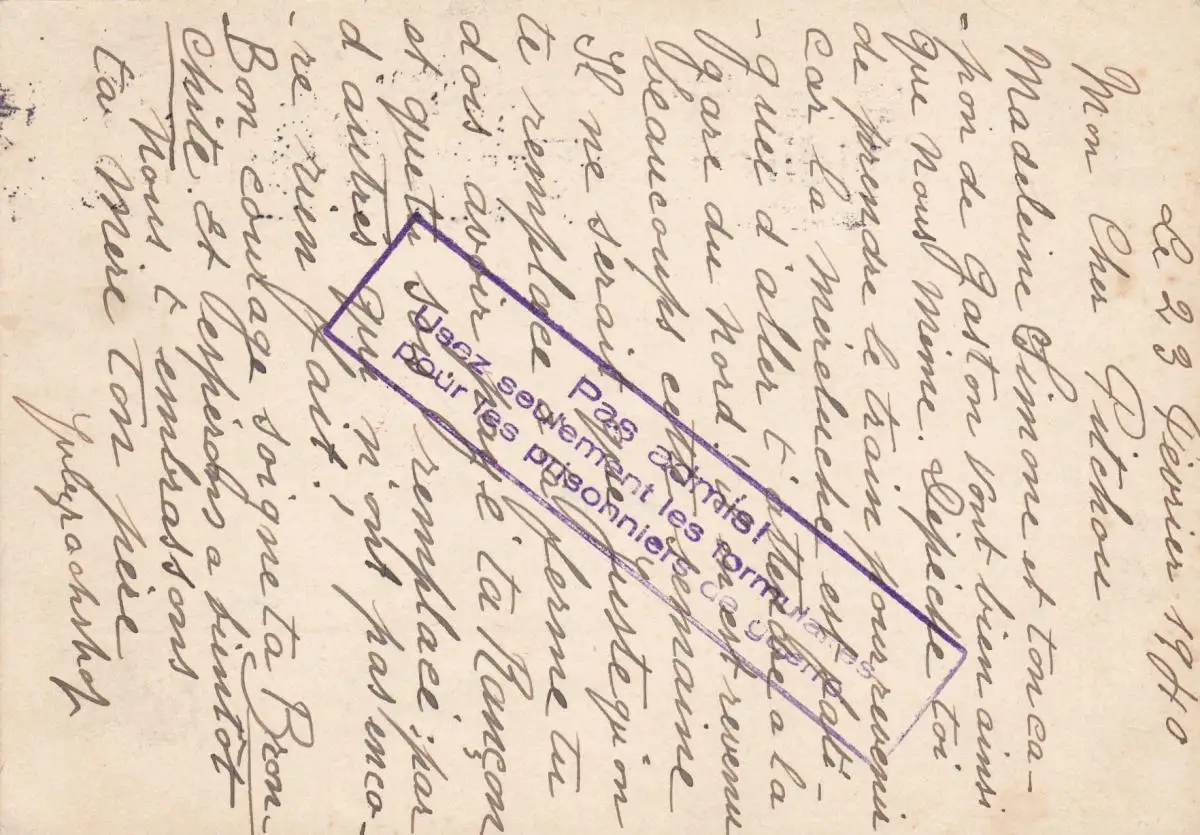 Le 23 Février 1940
Mon Cher Pitchou
Madeleine Simone et ton ca-
-pon de Gaston vont bien ainsi
que nous même. Dépeche toi
de prendre le train pour revenir
car la méreluche est fati
-guée d'aller t'attendre a la
gare du Nord il en est revenu
beaucoups cette semaine
Il ne serait que juste qu'on
te remplace a la ferme tu
dois avoir payé ta Rançon
et que tu sois remplacé par
d'autres qui n'ont pas enco-
-re rien fait,
Bon courage soigne ta Bron-
chite. Et espérons a bientôt
Nous t'embrassons
ta Mère ton père
Pas admis!
Usez seulement les formulaires
pour les prisonniers de guerre